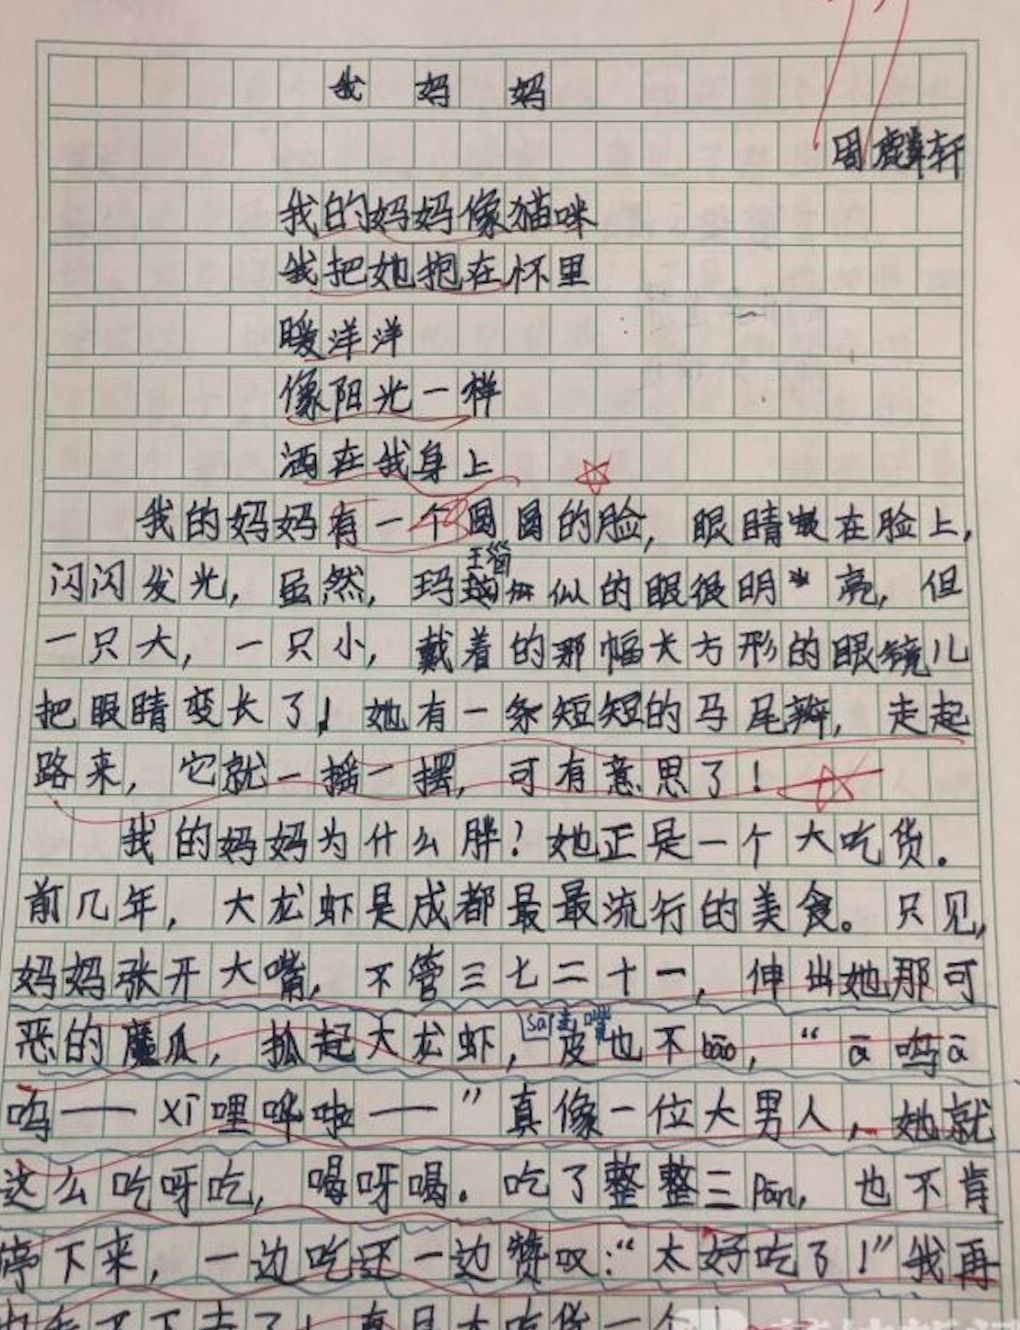 我妈妈
周麟轩
我的妈妈像猫咪
我把她抱在怀里
暖洋洋
像阳光一样
洒在我身上
我的妈妈有一个圆圆的脸，眼睛嵌在脸上，
闪闪发光，虽然，玛似的眼很明亮，但
一只大，一只小，戴着的那幅大方形的眼镜儿
把眼睛变长了！她有一条短短的马尾辫，走起
路来，它就一摇一摆，可有意思了！
我的妈妈为什么胖？她正是一个大吃货。
前几年，大龙虾是成都最最流行的美食。只见，
妈妈张开大嘴，不管三七二十一，伸出她那可
恶的魔爪，抓起大龙虾，sāi进嘴皮也不bāo，“ā呜ā
呜——xī哩哗啦——”真像一位大男人，她就
这么吃呀吃，喝呀喝。吃了整整三pán，也不肯
停下来，一边吃还一边赞叹：“太好吃了！”我再
也看不下去了！真是大吃货一个！